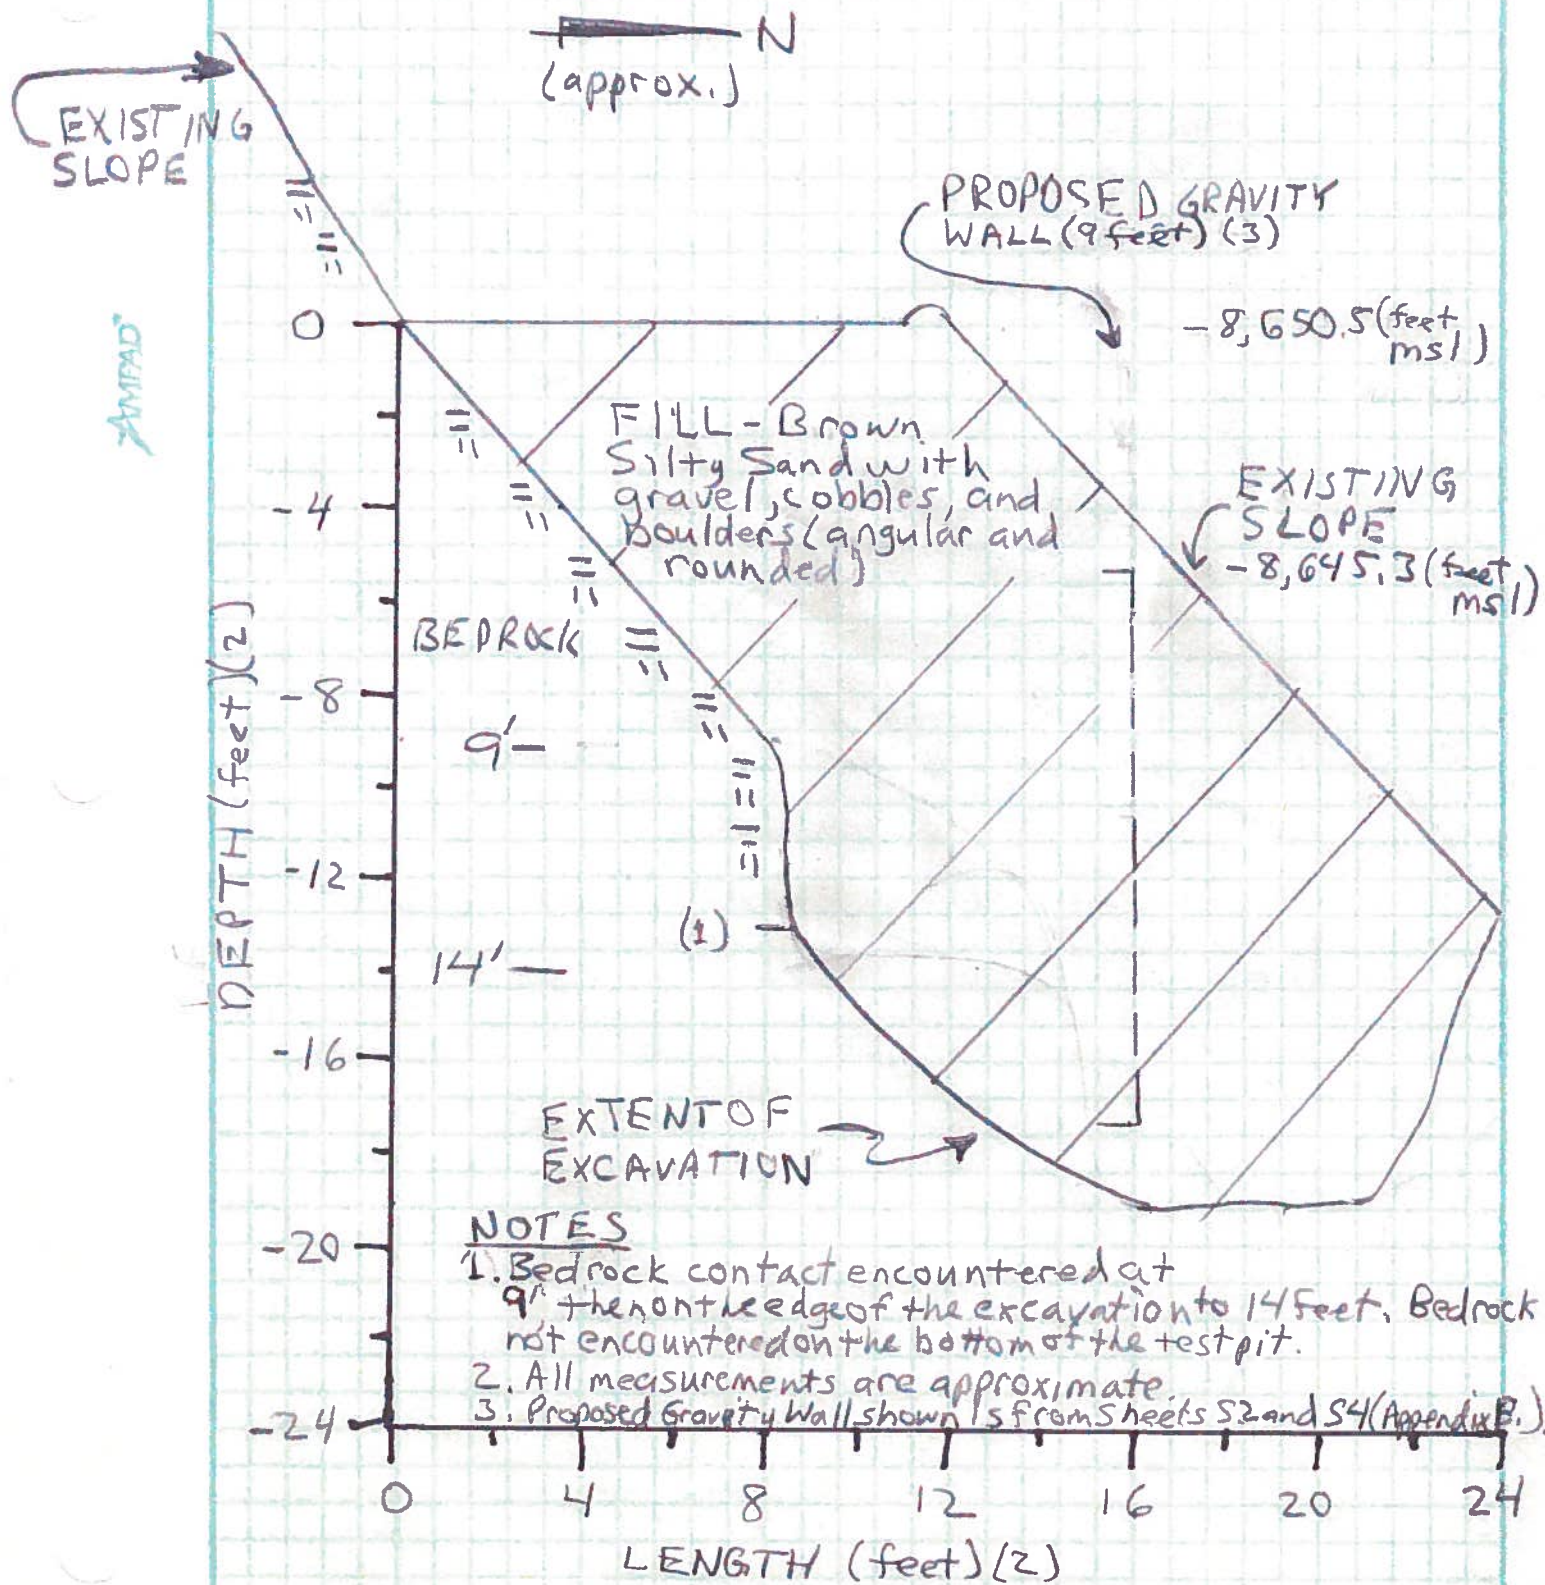 N
(approx.)
EXISTING
SLOPE
PROPOSED GRAVITY
WALL (9 feet) (3)
-8,650.5 (feet
msl)
0
AMPAD
FILL - Brown
Silty Sand with
gravel, cobbles, and
boulders (angular and
rounded)
EXISTING
SLOPE
-8,645.3 (feet
msl)
-4
BEDROCK
-8
9'
DEPTH (feet) (2)
-12
(1)
14'
-16
EXTENT OF
EXCAVATION
-20
NOTES
1. Bedrock contact encountered at
9' then on the edge of the excavation to 14 feet. Bedrock
not encountered on the bottom of the test pit.
2. All measurements are approximate.
3. Proposed Gravity Wall shown is from Sheets S2 and S4 (Appendix B.).
-24
0 4 8 12 16 20 24
LENGTH (feet) (2)